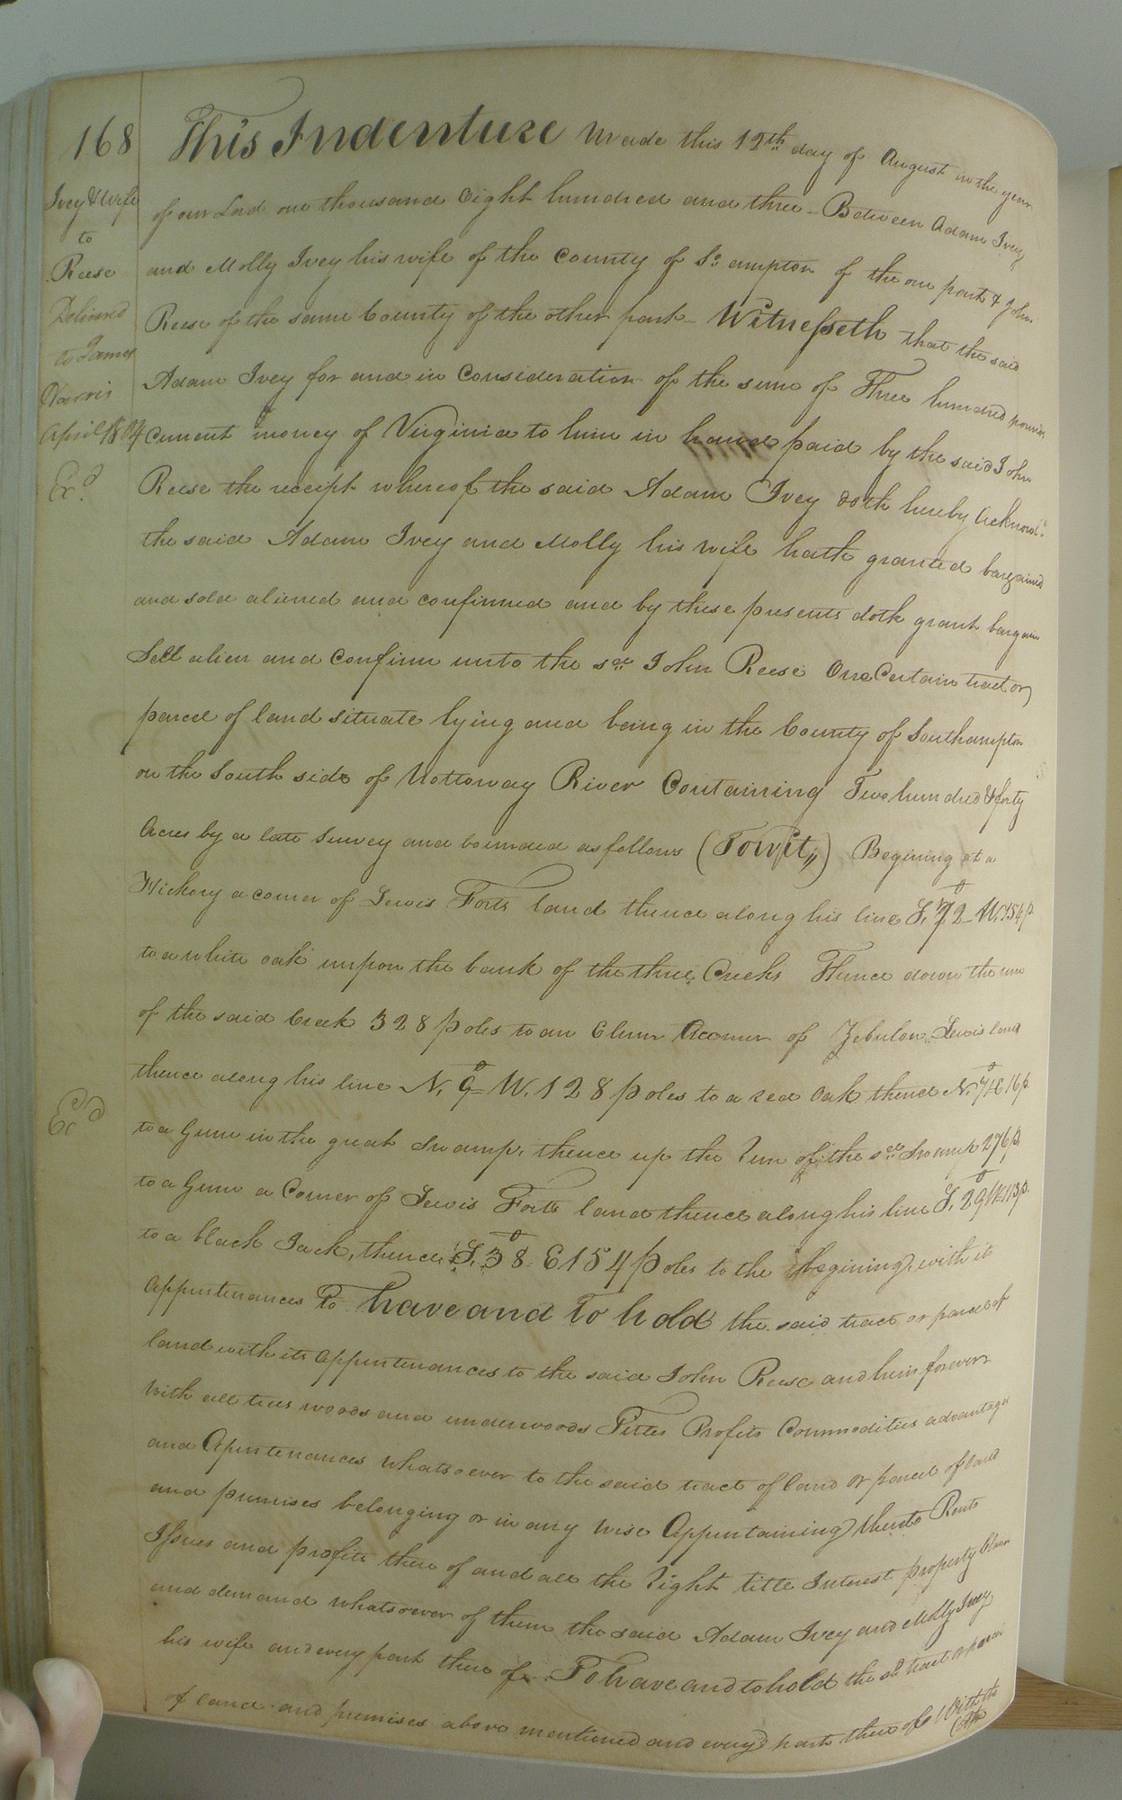 168
Ivey & Wife
to
Reese
Delivered
to James
Harris
April 1804
Exd.
Exd
This Indenture Made this 12th day of August in the year
of our Lord one thousand Eight hundred and three - Between Adam Ivey
and Molly Ivey his wife of the County of So.ampton of the one part & John
Reese of the same County of the other part - Witnesseth that the said
Adam Ivey for and in Consideration of the sum of Three hundred pounds
Current money of Virginia to him in hand paid by the said John
Reese the receipt whereof the said Adam Ivey doth hereby Acknowl.
the said Adam Ivey and Molly his wife hath granted bargained
and sold aliened and confirmed and by these presents doth grant bargain
Sell alien and Confirm unto the sd. John Reese One Certain tract or
parcel of land situate lying and being in the County of Southampton
on the South side of Nottoway River Containing Two hundred & forty
Acres by a late Survey and bounded as follows (Towit,,) Begining at a
Hickory a corner of Lewis Forts land thence along his line S. 72 W. 154 p
to a white oak unpon the bank of the three Creeks Thence down the run
of the said Creek 328 poles to an Elum Acorner of Zebulon Lewis land
thence along his line N. 9 W. 128 poles to a red Oak thence N. 7 E 16 p.
to a Gum in the great Swamp, thence up the Run of the sd. Swamp 276 p
to a Gum a Corner of Lewis Forts land thence along his line S. 29 W. 113 p.
to a black Jack, thence S. 38 E 154 poles to the begining, with it
Appurtenances To have and To hold the said tract or parcel of
land with its Appurtenances to the said John Reese and him forever
With all trees woods and underwoods Tittes Profits Commodities advantage
and Apurtenances whatsoever to the said tract of land or parcel of land
and premises belonging or in any wise Appurtaining thereto Rents
Issues and profits there of and all the Right title Interest property Claim
and demand whatsoever of them the said Adam Ivey and Molly Ivey
his wife and every part there of - To have and to hold the sd. tract or parcel
of land and premises above mentioned and every part there of With the